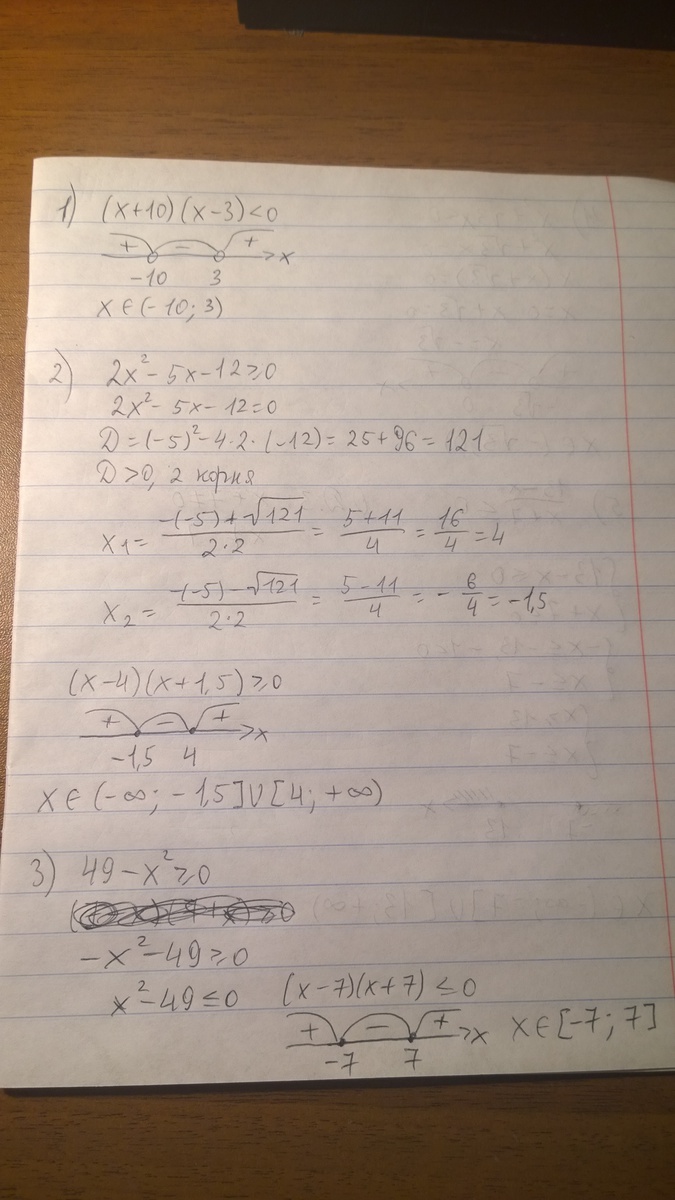 1) (x+10)(x-3)<0
+ - + x
-10 3
x∈(-10; 3)
2) 2x²-5x-12≥0
2x²-5x-12=0
D=(-5)²-4·2·(-12)=25+96=121
D>0, 2 корня
x1= -(-5)+√121 / 2·2 = 5+11 / 4 = 16/4 =4
x2= -(-5)-√121 / 2·2 = 5-11 / 4 = - 6/4 =-1,5
(x-4)(x+1,5)≥0
+ - + x
-1,5 4
x∈(-∞; -1,5]∪[4; +∞)
3) 49-x²≥0
-x²-49≥0
x²-49≤0 (x-7)(x+7)≤0
+ - + x x∈[-7; 7]
-7 7